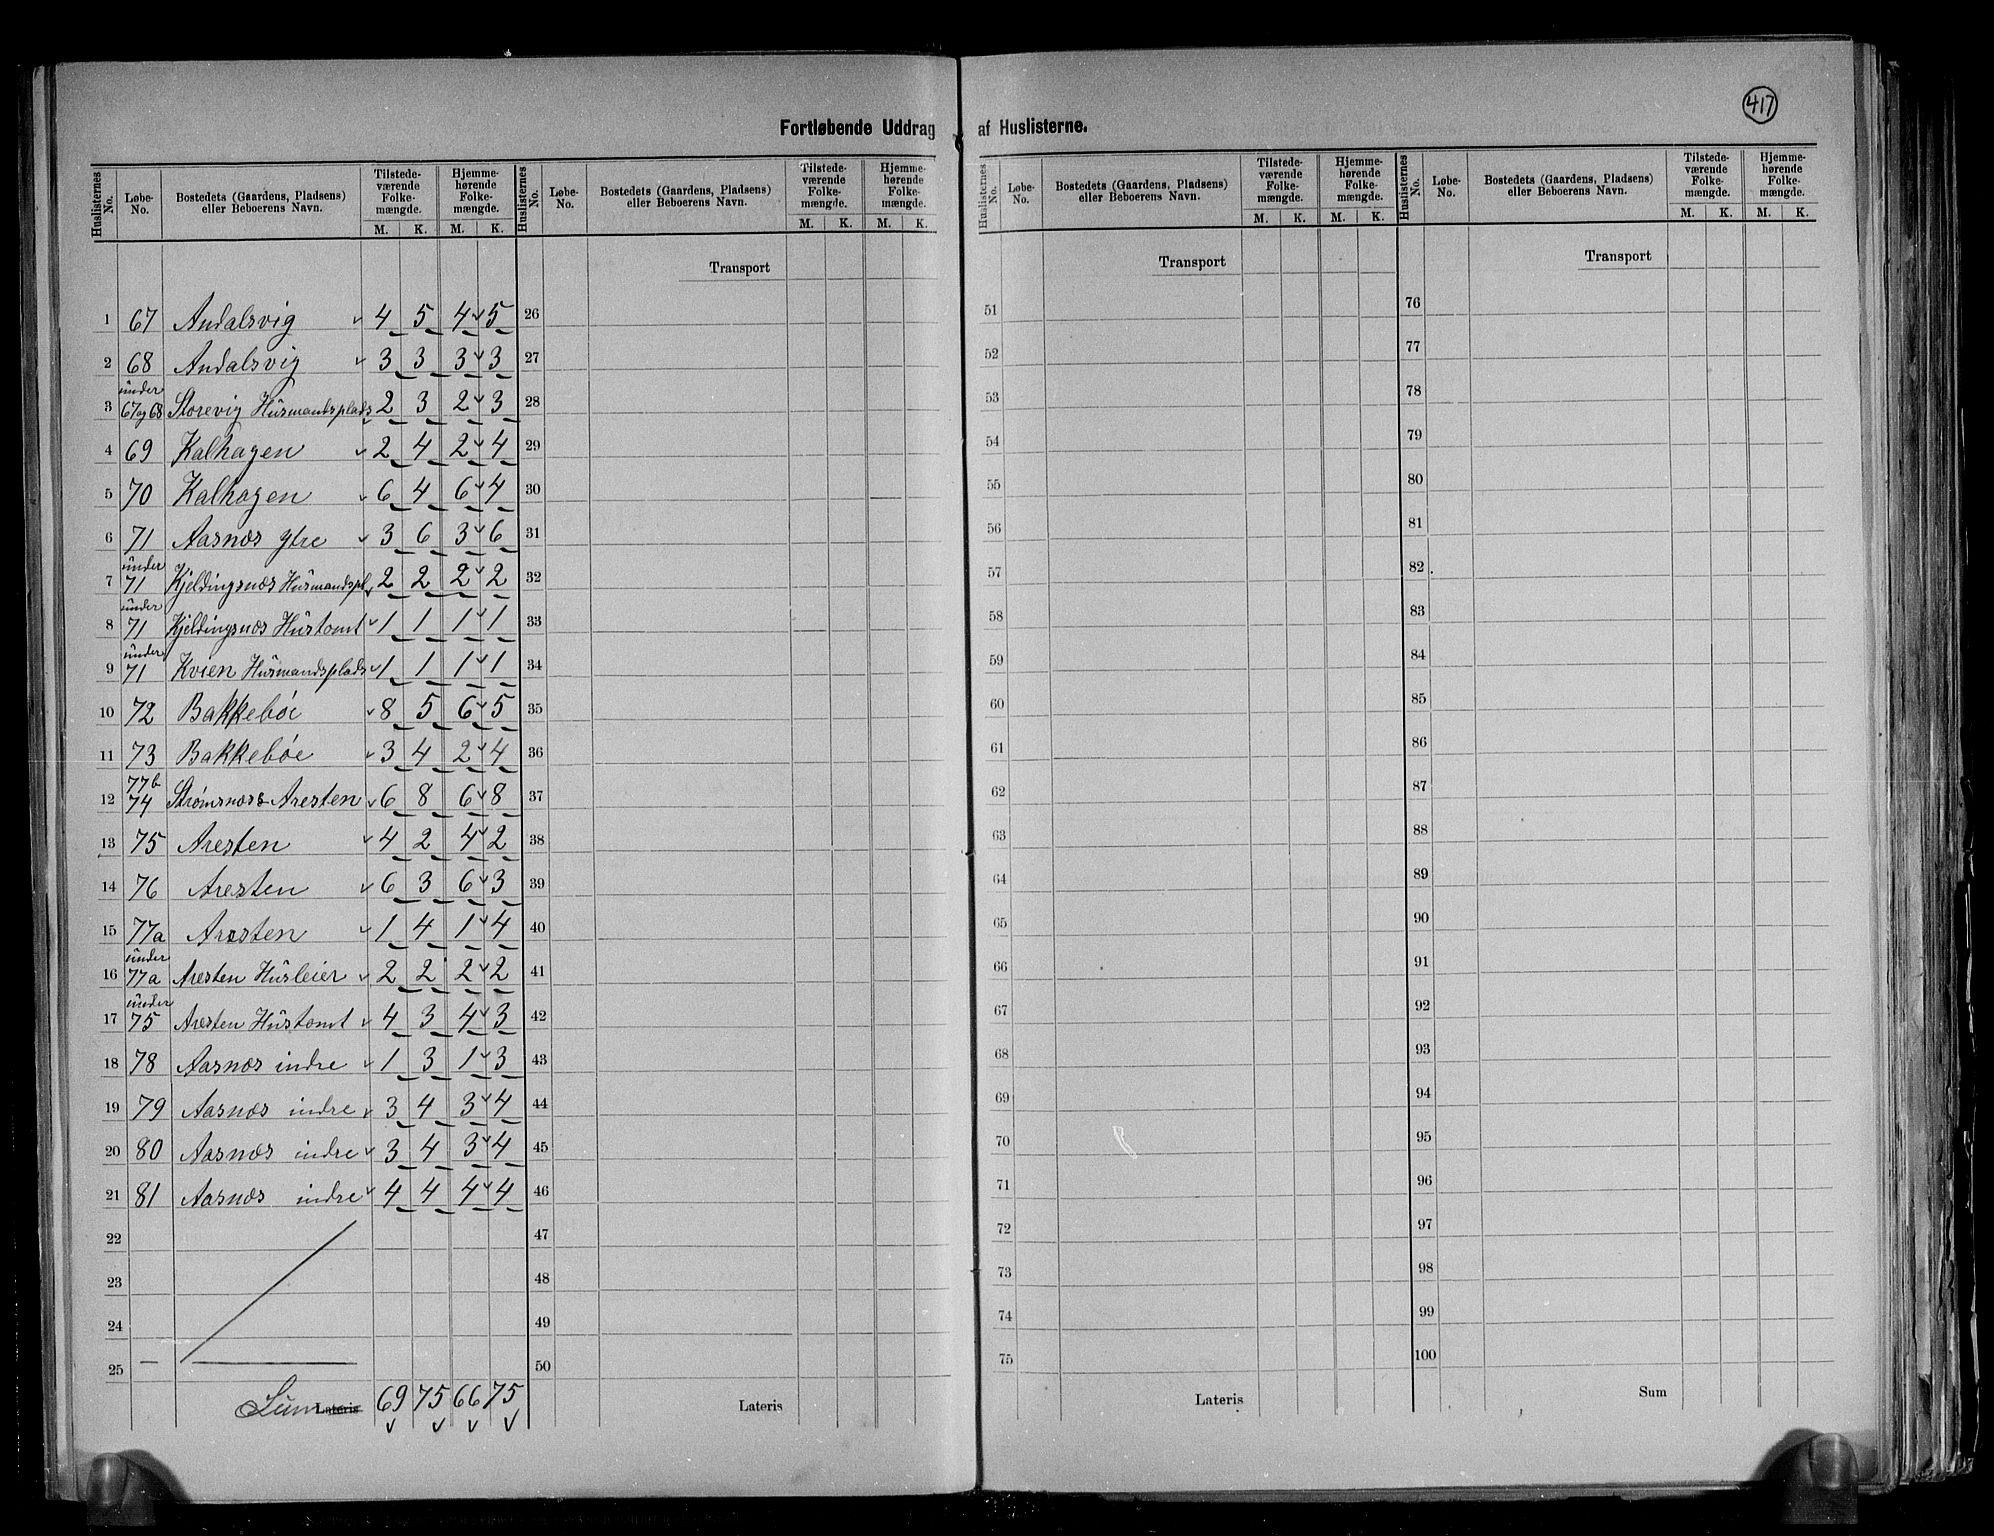 417
Fortløbende Uddrag af Huslisterne.
Huslisternes No. Løbe-No. Bostedets (Gaardens, Pladsens) eller Beboerens Navn. Tilstedeværende Folkemængde. M. K. Hjemmehørende Folkemængde. M. K.
Huslisternes No. Løbe-No. Bostedets (Gaardens, Pladsens) eller Beboerens Navn. Tilstedeværende Folkemængde. M. K. Hjemmehørende Folkemængde. M. K.
Huslisternes No. Løbe-No. Bostedets (Gaardens, Pladsens) eller Beboerens Navn. Tilstedeværende Folkemængde. M. K. Hjemmehørende Folkemængde. M. K.
Huslisternes No. Løbe-No. Bostedets (Gaardens, Pladsens) eller Beboerens Navn. Tilstedeværende Folkemængde. M. K. Hjemmehørende Folkemængde. M. K.
1 67 Andalsvig 4 5 4 5
2 68 Andalsvig 3 3 3 3
3 under 67 og 68 Storevig Husmandsplads 2 3 2 3
4 69 Kalhagen 2 4 2 4
5 70 Kalhagen 6 4 6 4
6 71 Aasnæs ytre 3 6 3 6
7 under 71 Kjeldingsnæs Husmandspl 2 2 2 2
8 under 71 Kjeldingsnæs Hustomt 1 1 1 1
9 under 71 Kvien Husmandsplads 1 1 1 1
10 72 Bakkebøe 8 5 6 5
11 73 Bakkebøe 3 4 2 4
12 77b 74 Strømsnæs & Aresten 6 8 6 8
13 75 Aresten 4 2 4 2
14 76 Aresten 6 3 6 3
15 77a Aresten 1 4 1 4
16 under 77a Aresten Husleier 2 2 2 2
17 under 75 Aresten Hustomt 4 3 4 3
18 78 Aasnæs indre 1 3 1 3
19 79 Aasnæs indre 3 4 3 4
20 80 Aasnæs indre 3 4 3 4
21 81 Aasnæs indre 4 4 4 4
22
23
24
25 —
Sum Lateris 69 75 66 75
Transport
26
27
28
29
30
31
32
33
34
35
36
37
38
39
40
41
42
43
44
45
46
47
48
49
50
Lateris
Transport
51
52
53
54
55
56
57
58
59
60
61
62
63
64
65
66
67
68
69
70
71
72
73
74
75
Lateris
Transport
76
77
78
79
80
81
82
83
84
85
86
87
88
89
90
91
92
93
94
95
96
97
98
99
100
Sum